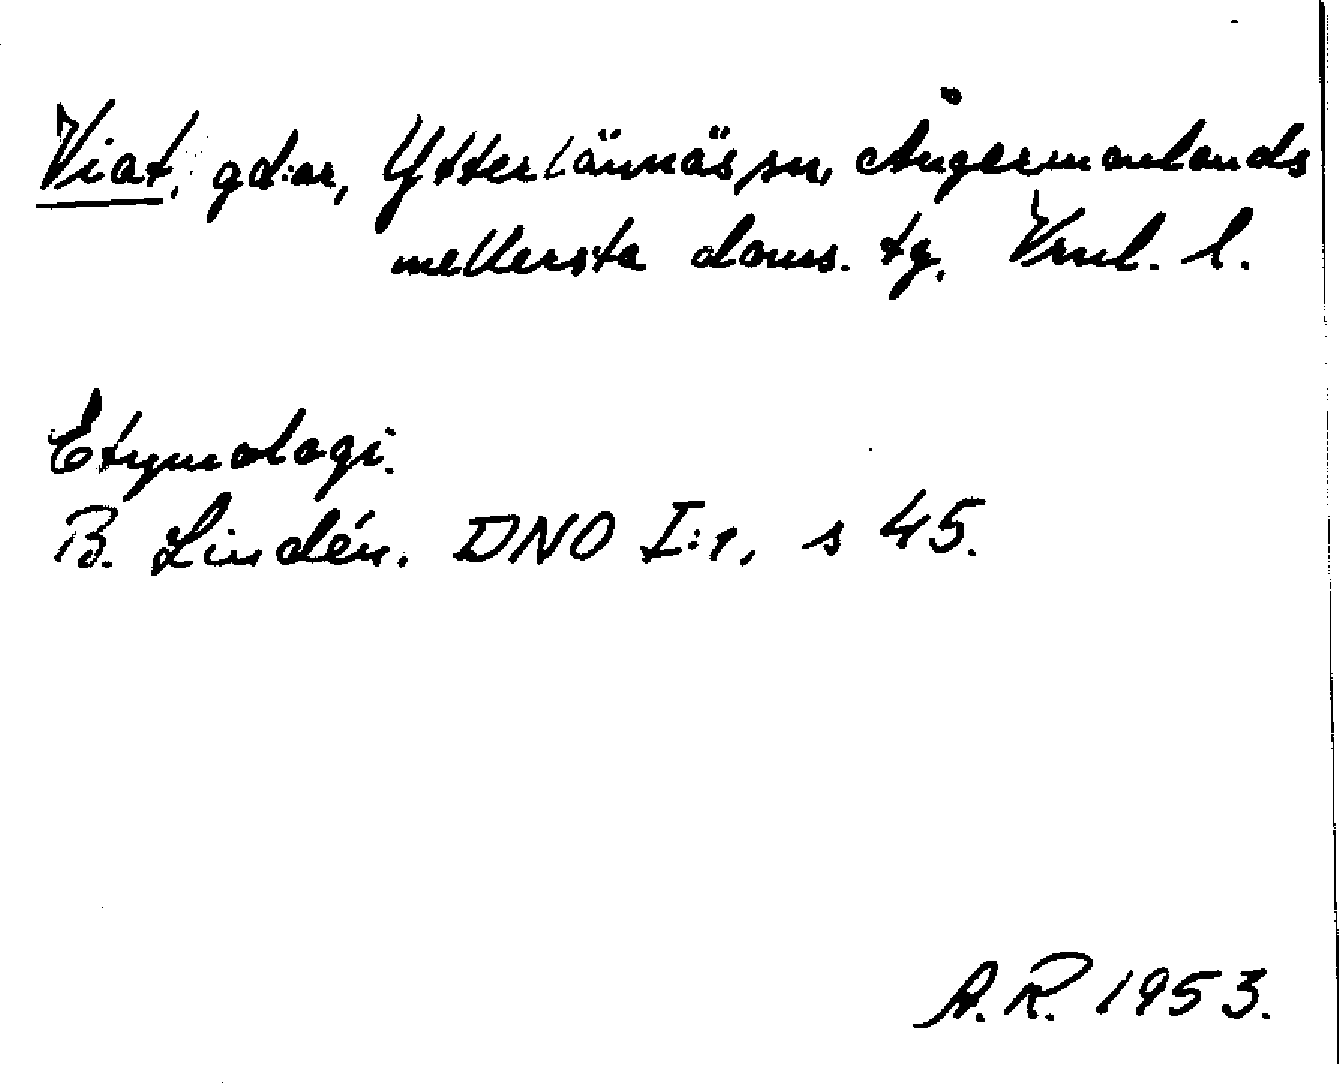 Viat, gd:ar, Ytterlännäs sn, Ångermanlands
mellersta doms. tg, Vrnl. l.
Etymologi.
B. Lindén. DNO I:1, s 45.
A.R. 1953.